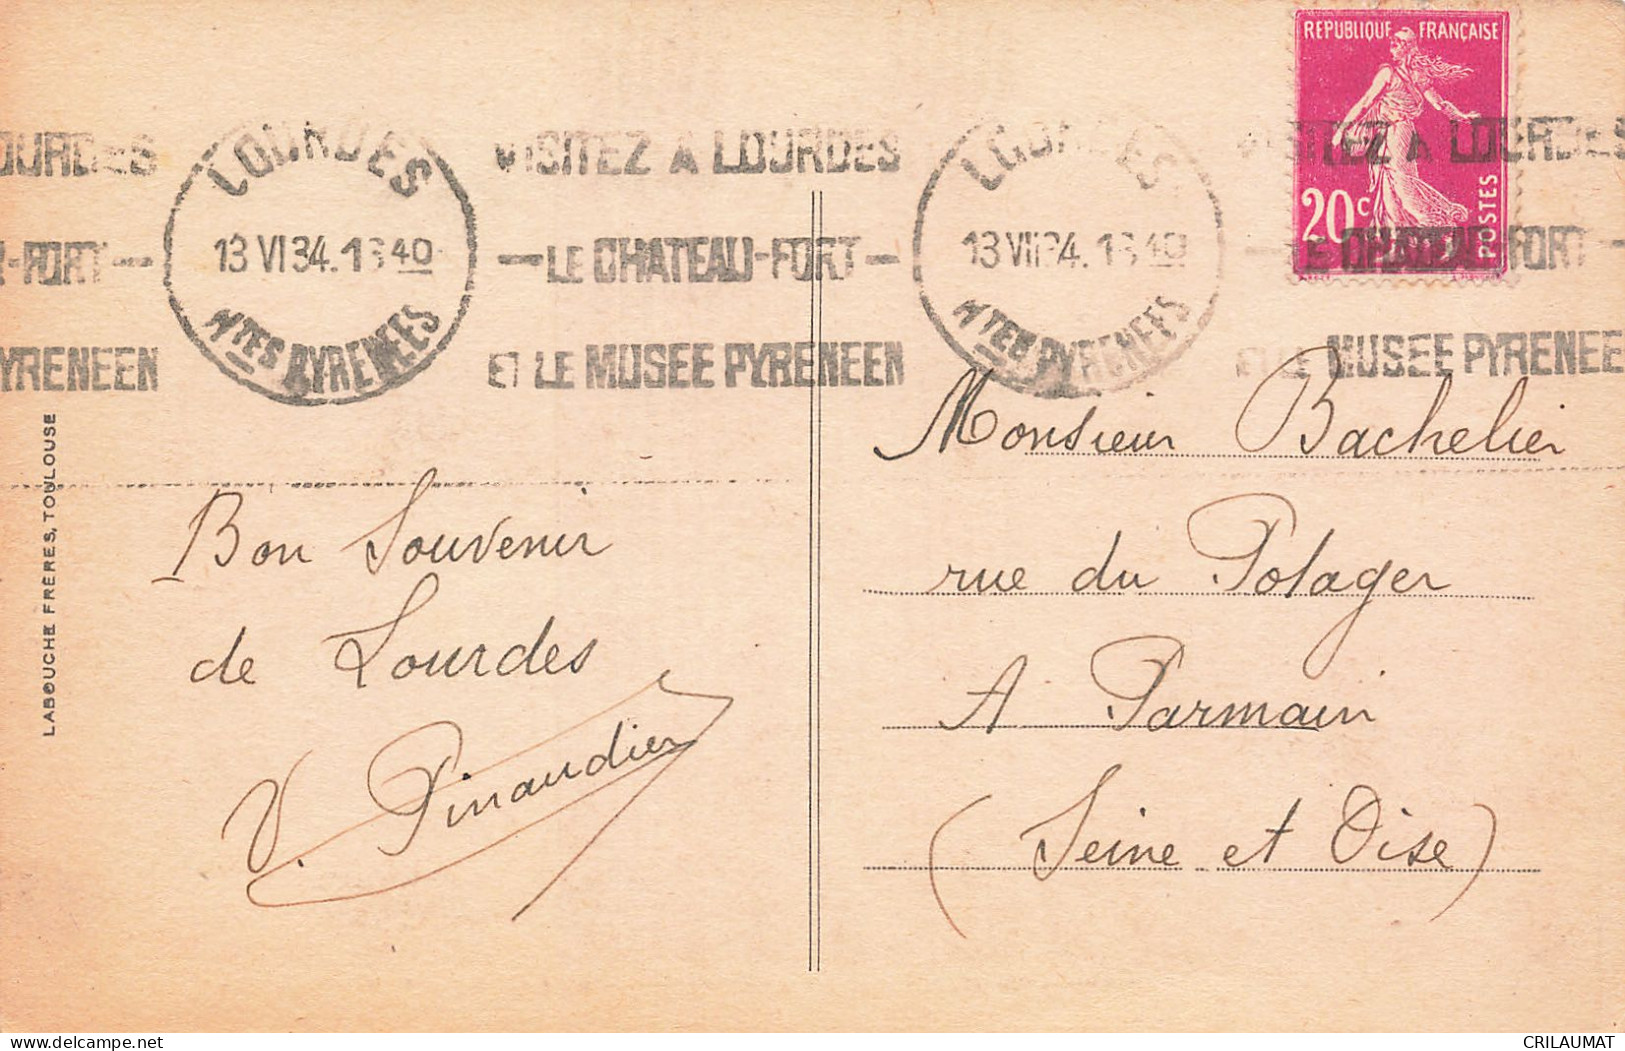 REPUBLIQUE FRANÇAISE
20c
POSTES
OURDES
-FORT —
YRENEEN
LOURDES
13 VI 34. 13 40
Htes PYRENEES
VISITEZ A LOURDES
— LE CHATEAU-FORT —
ET LE MUSEE PYRENEEN
LOURDES
13 VII 34. 13 40
Htes PYRENEES
VISITEZ A LOURDES
— LE CHATEAU-FORT —
ET LE MUSEE PYRENEE
LABOUCHE FRÈRES, TOULOUSE
Bon Souvenir
de Lourdes
V. Pinaudier
Monsieur Bachelier
rue du Potager
A Parmain
(Seine et Oise)
delcampe.net
CRILAUMAT